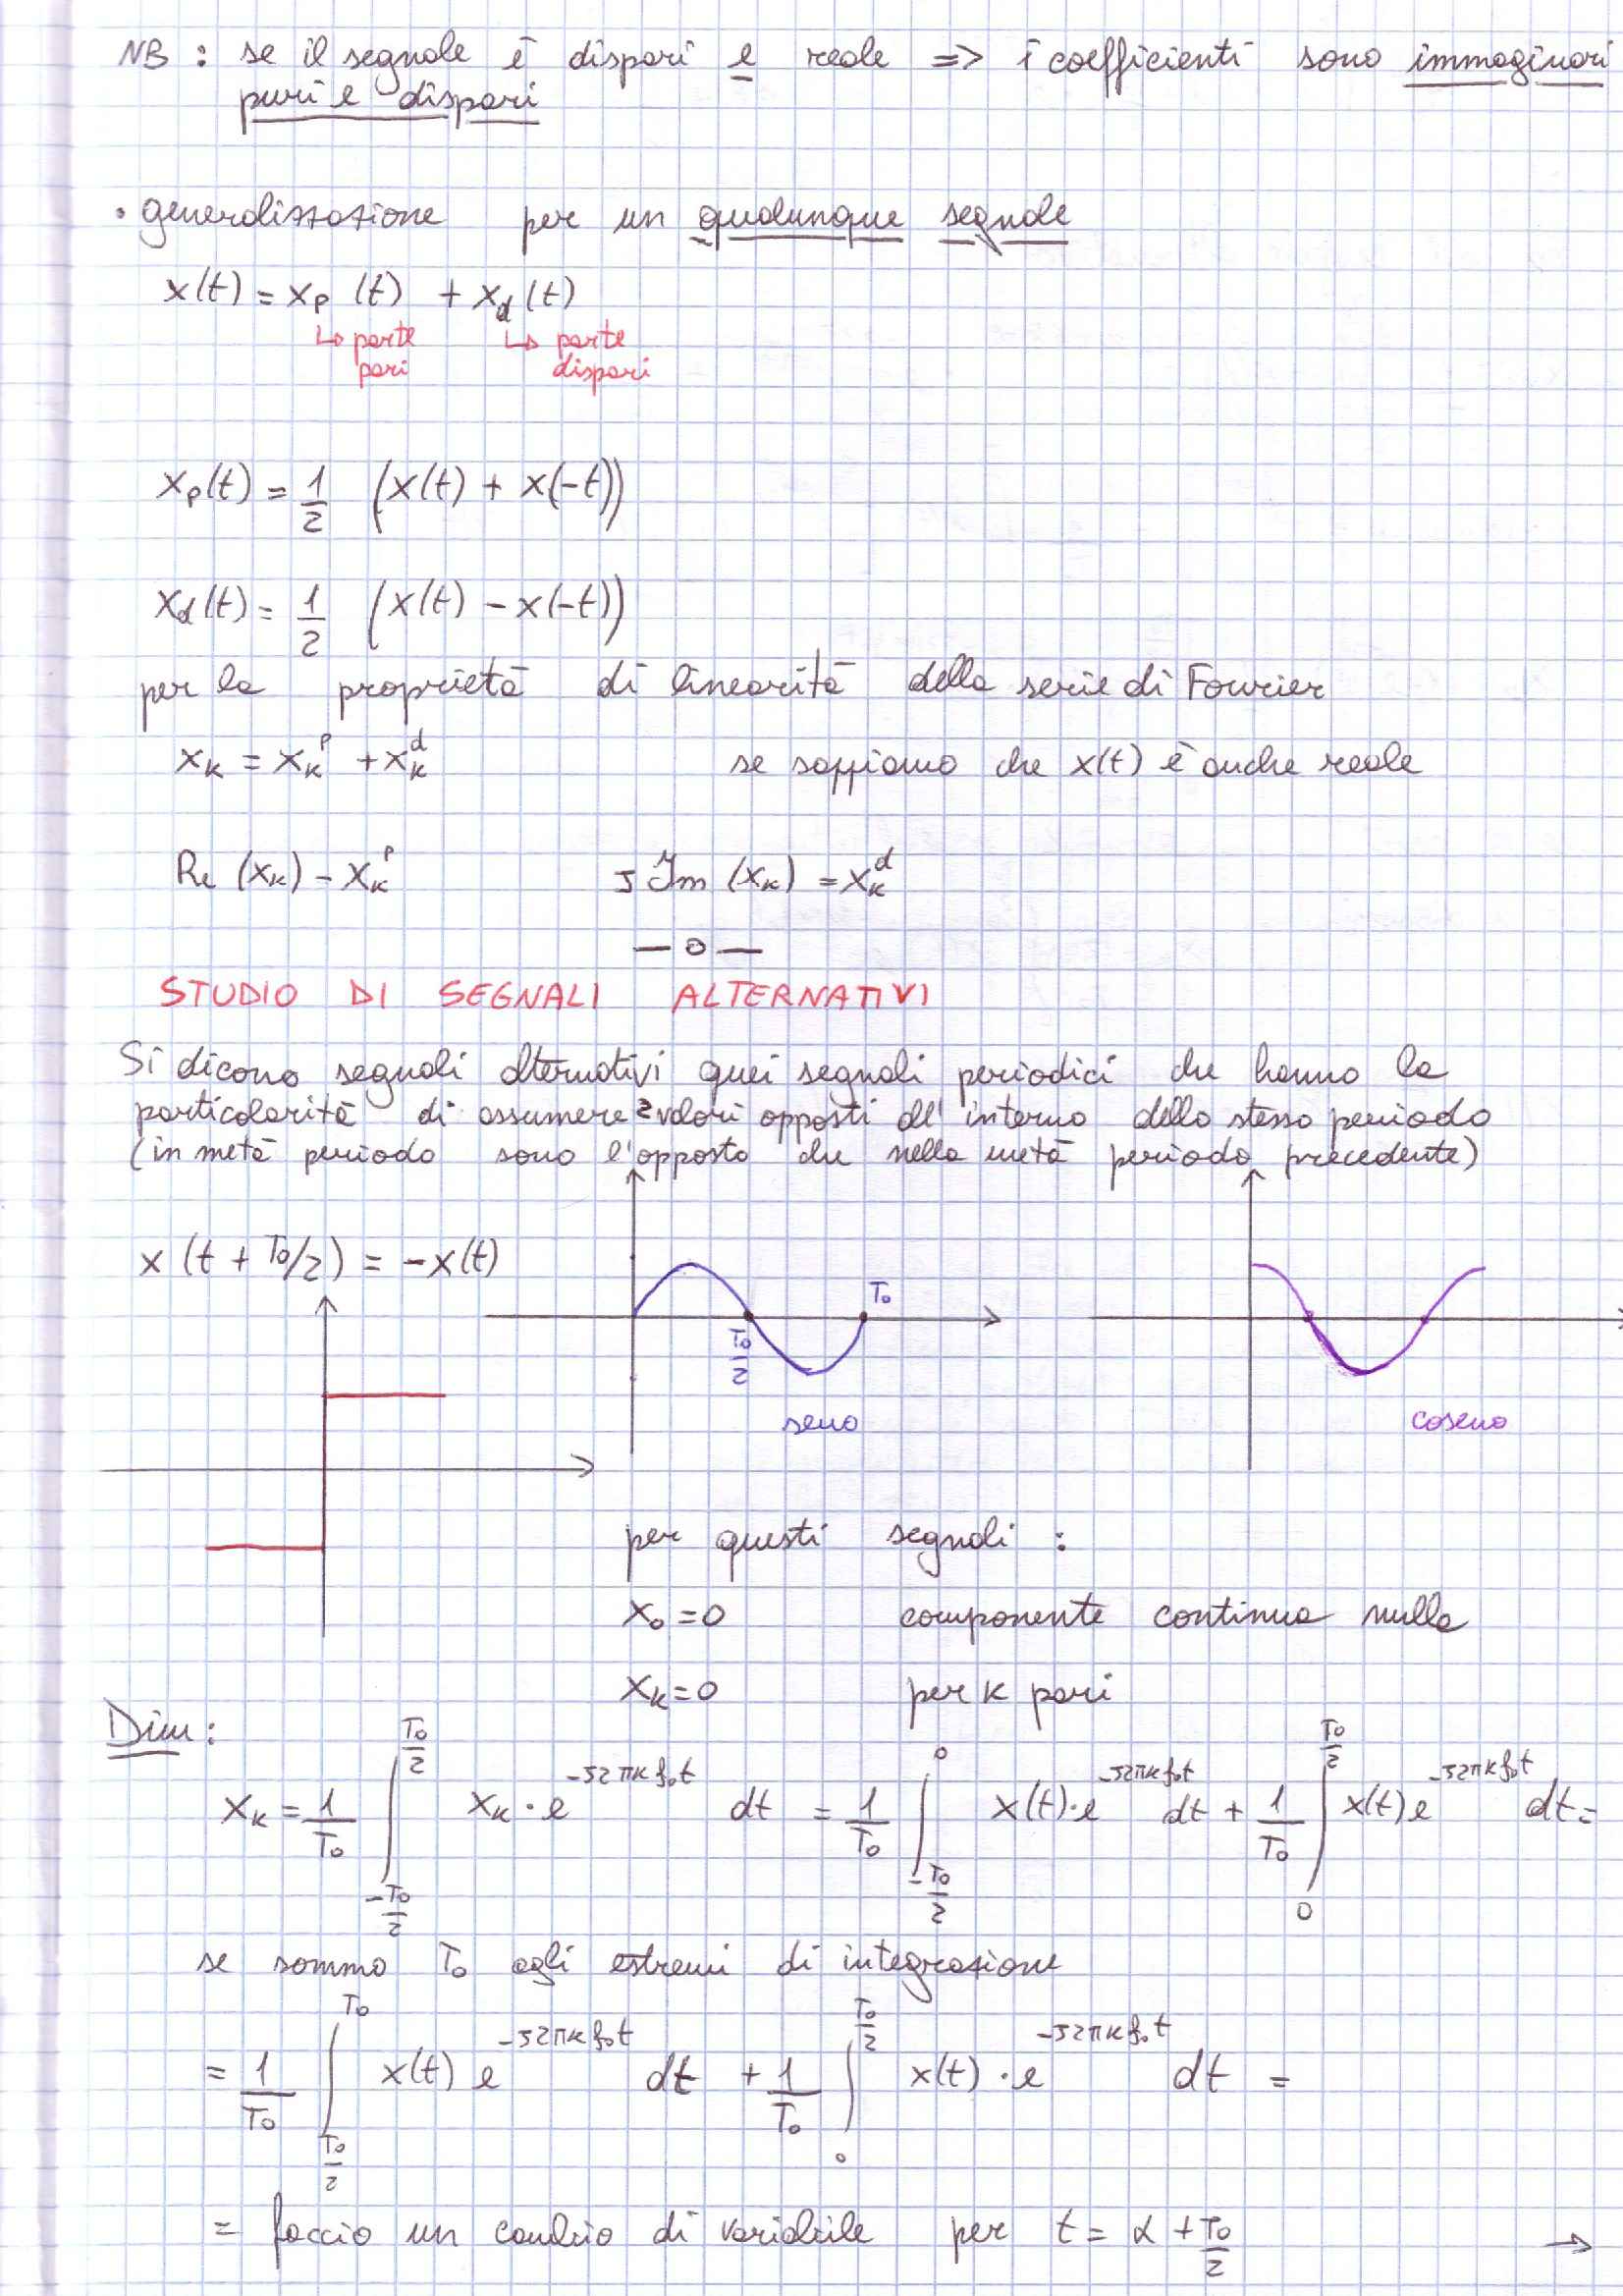 NB : se il segnale è dispari e reale => i coefficienti sono immaginari
puri e dispari
• generalizzazione per un qualunque segnale
x(t) = xp (t) + xd (t)
↳ parte pari ↳ parte dispari
xp(t) = 1/2 (x(t) + x(-t))
xd(t) = 1/2 (x(t) - x(-t))
per la proprietà di linearità della serie di Fourier
Xk = Xk^p + Xk^d se sappiamo che x(t) è anche reale
Re (Xk) = Xk^p J Im (Xk) = Xk^d
— o —
STUDIO DI SEGNALI ALTERNATIVI
Si dicono segnali alternativi quei segnali periodici che hanno la
particolarità di assumere 2 valori opposti all'interno dello stesso periodo
(in metà periodo sono l'opposto che nella metà periodo precedente)
x (t + T0/2) = -x(t)
T0/2
T0
seno
coseno
per questi segnali :
X0 = 0 componente continua nulla
Xk = 0 per k pari
Dim :
Xk = 1/T0 ∫_{-T0/2}^{T0/2} Xk · e^{-J2πkf0t} dt = 1/T0 ∫_{-T0/2}^{0} x(t) · e^{-J2πkf0t} dt + 1/T0 ∫_{0}^{T0/2} x(t) e^{-J2πkf0t} dt =
se sommo T0 agli estremi di integrazione
= 1/T0 ∫_{T0/2}^{T0} x(t) e^{-J2πkf0t} dt + 1/T0 ∫_{0}^{T0/2} x(t) · e^{-J2πkf0t} dt =
= faccio un cambio di variabile per t = α + T0/2 →